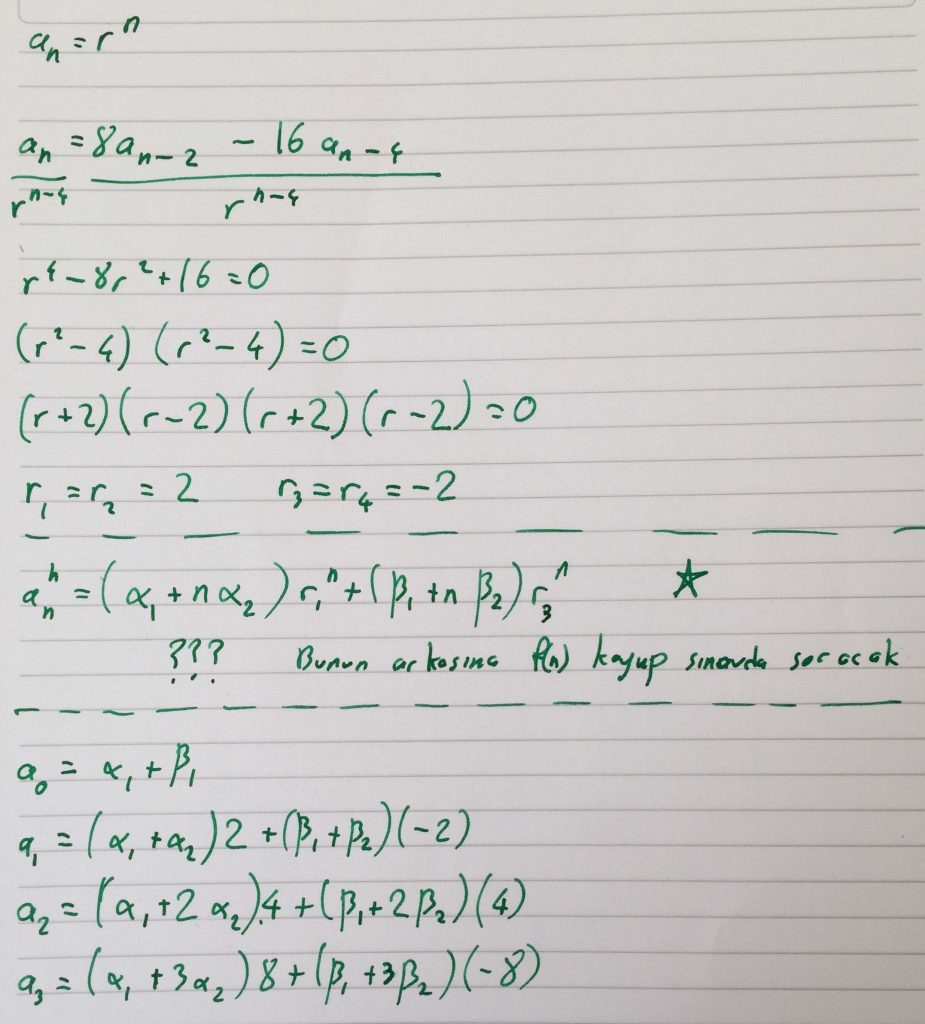 aₙ = rⁿ
aₙ = 8aₙ₋₂ - 16 aₙ₋₄
rⁿ⁻⁴ rⁿ⁻⁴
r⁴ - 8r² + 16 = 0
(r² - 4) (r² - 4) = 0
(r + 2)(r - 2)(r + 2)(r - 2) = 0
r₁ = r₂ = 2 r₃ = r₄ = -2
aₙʰ = (α₁ + n α₂) r₁ⁿ + (β₁ + n β₂) r₃ⁿ ☆
??? Bunun arkasına f(n) koyup sınavda soracak
a₀ = α₁ + β₁
a₁ = (α₁ + α₂) 2 + (β₁ + β₂)(-2)
a₂ = (α₁ + 2 α₂).4 + (β₁ + 2 β₂)(4)
a₃ = (α₁ + 3 α₂) 8 + (β₁ + 3 β₂)(-8)